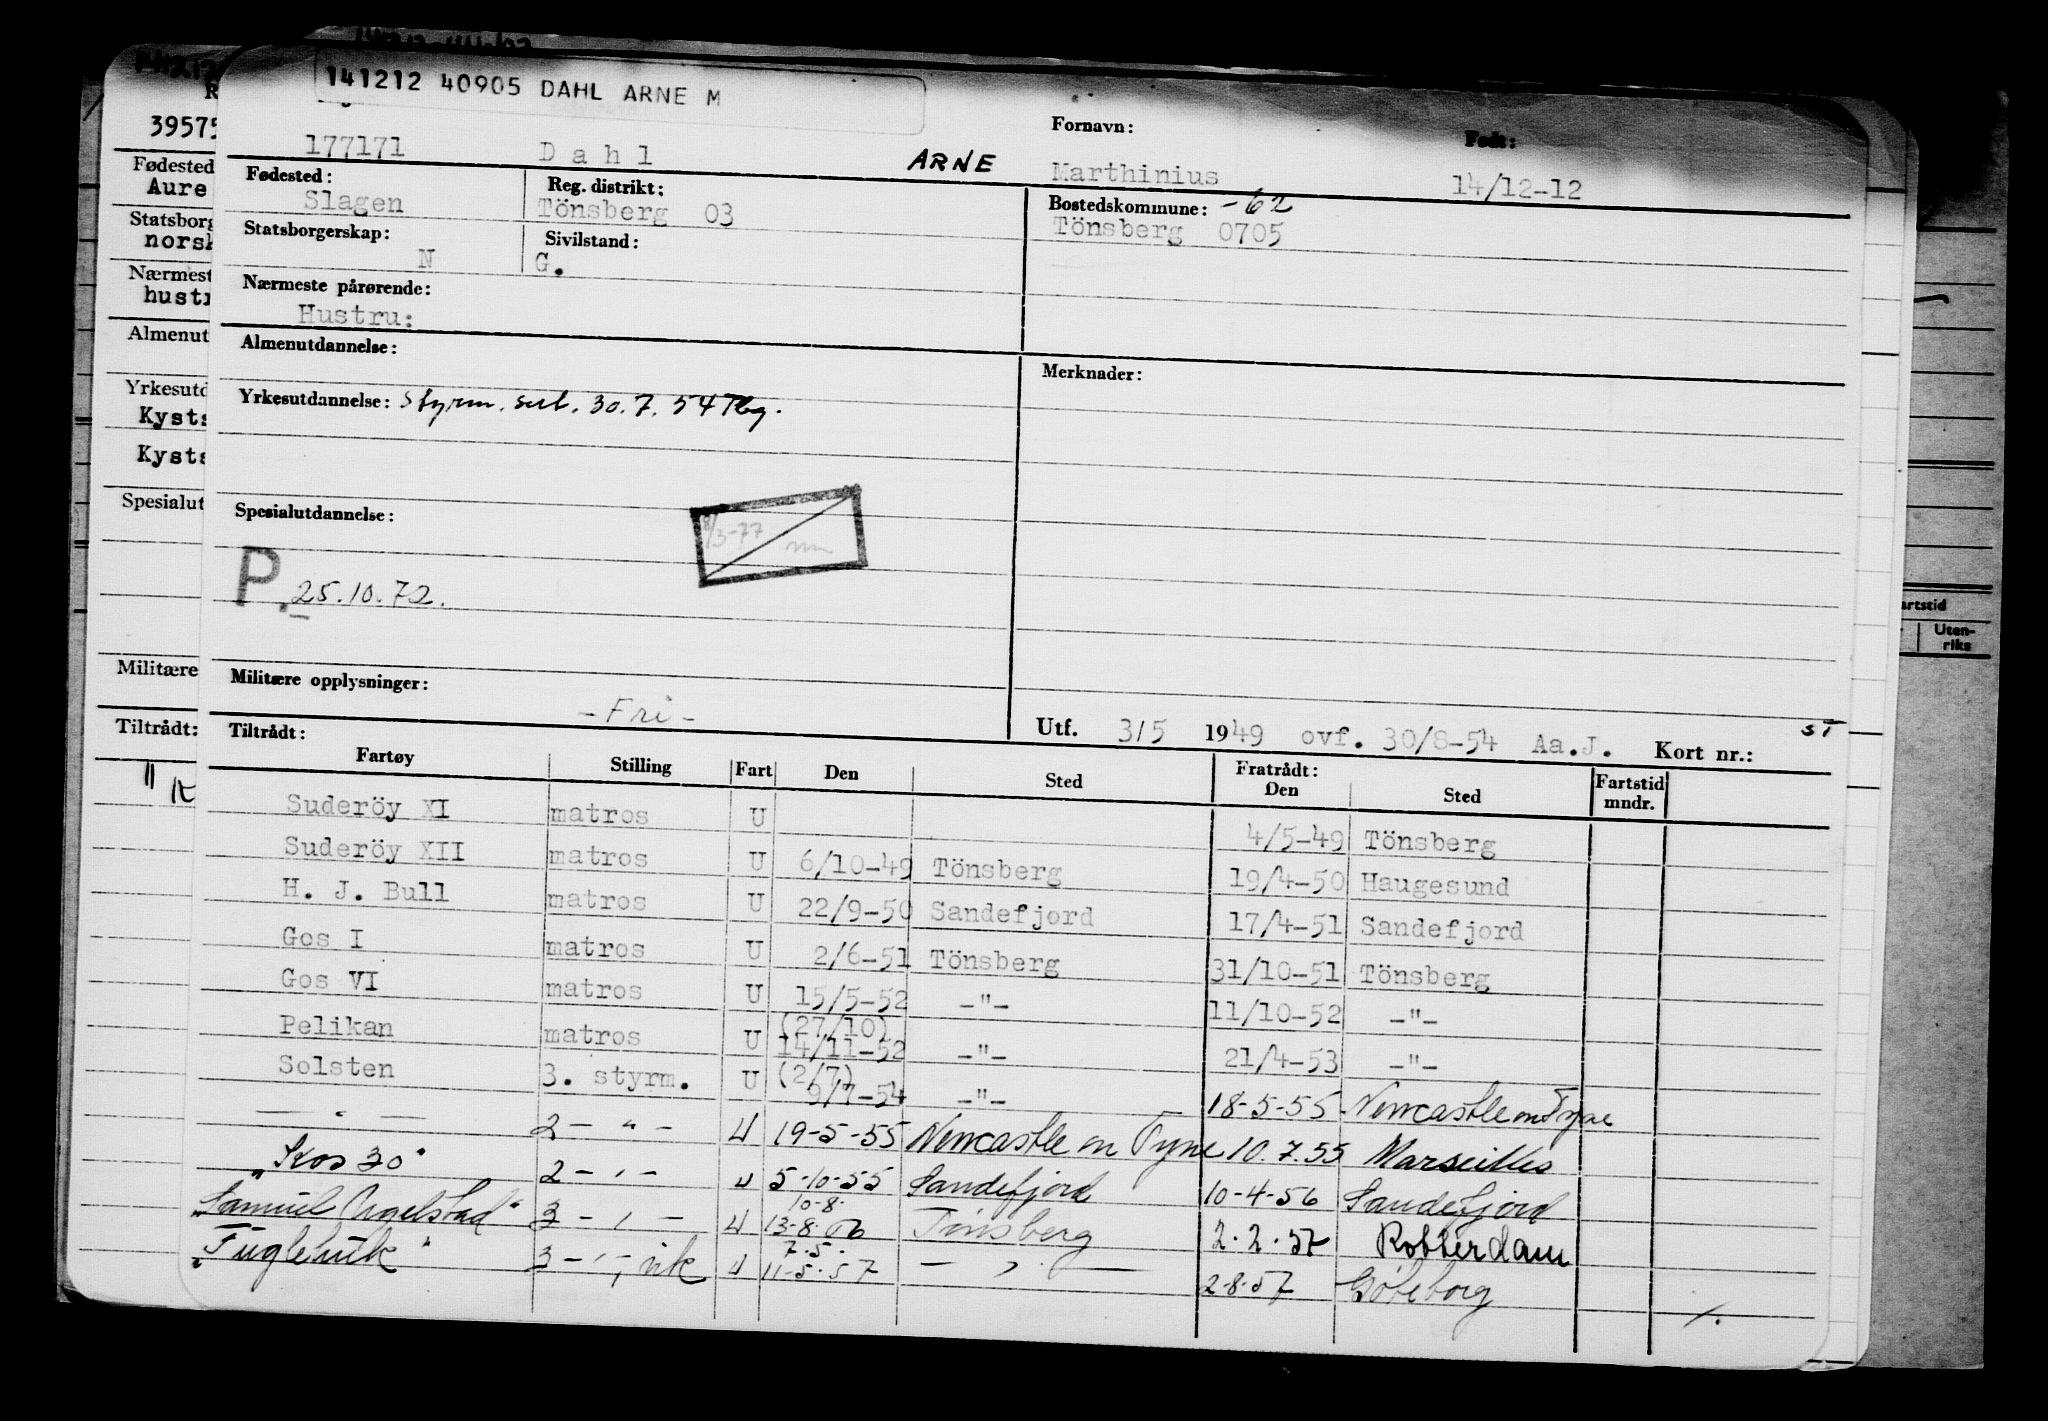 141212 40905 DAHL ARNE M
39575
Fornavn: Født:
177171 Dahl ARNE Marthinius 14/12-12
Fødested: Reg. distrikt: Bostedskommune: -62
Slagen Tönsberg 03 Tönsberg 0705
Statsborgerskap: Sivilstand:
N G.
Nærmeste pårørende:
Hustru:
Almenutdannelse: Merknader:
Yrkesutdannelse: Styrm. sert. 30.7.54 Tbg.
Spesialutdannelse:
8/3-77
P. 25.10.72.
Militære opplysninger:
-Fri-
Utf. 3/5 1949 ovf. 30/8-54 Aa.J. Kort nr.: ST
Tiltrådt: Fratrådt:
Fartøy Stilling Fart Den Sted Den Sted Fartstid mndr.
Suderöy XI matros U 4/5-49 Tönsberg
Suderöy XII matros U 6/10-49 Tönsberg 19/4-50 Haugesund
H. J. Bull matros U 22/9-50 Sandefjord 17/4-51 Sandefjord
Gos I matros U 2/6-51 Tönsberg 31/10-51 Tönsberg
Gos VI matros U 15/5-52 -"- 11/10-52 -"-
Pelikan matros U (27/10) 14/11-52 -"- 21/4-53 -"-
Solsten 3. styrm. U (2/7) 9/7-54 -"- 18-5-55 Newcastle on Tyne
— " — 2 - " - U 19-5-55 Newcastle on Tyne 10.7.55 Marseilles
"Kos 20" 2 - " - U 5-10-55 Sandefjord 10-4-56 Sandefjord
"Samuel Ugelstad" 3 - " - U 10-8. 13-8.56 Tönsberg 2.2.57 Rotterdam
"Fuglehuk" 3 - " - U 7.5. 11-5.57 — " — 2-8-57 Göteborg
Fødested
Aure
Statsborg
norsk
Nærmest
hustr
Almenut
Yrkesutd
Kysts
Kysts
Spesialut
Militære
Tiltrådt:
artstid
Uten-
riks